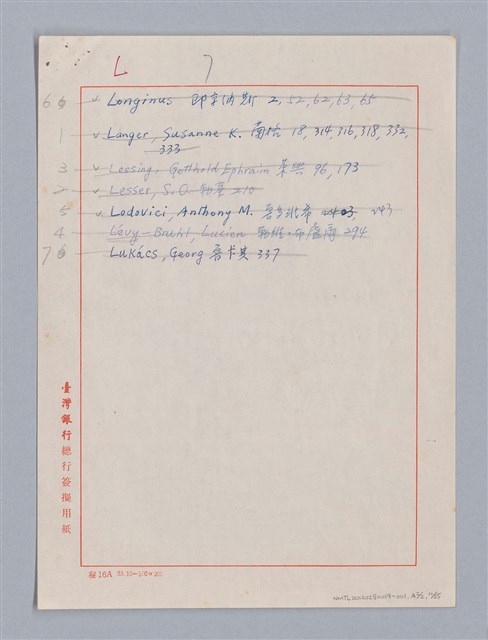 L 7
6 ✓ Longinus 郎幸納斯 2, 52, 62, 63, 65
1 ✓ Langer, Susanne K. 蘭格 18, 314, 316, 318, 332,
333
3 ✓ Lessing, Gotthold Ephraim 萊興 96, 173
2 ✓ Lesser, S.O. 210
5 ✓ Lodovici, Anthony M. 243
4 Lévy-Bruhl, Lucien 294
7 Lukács, Georg 魯卡其 337
臺灣銀行總行簽擬用紙
16A